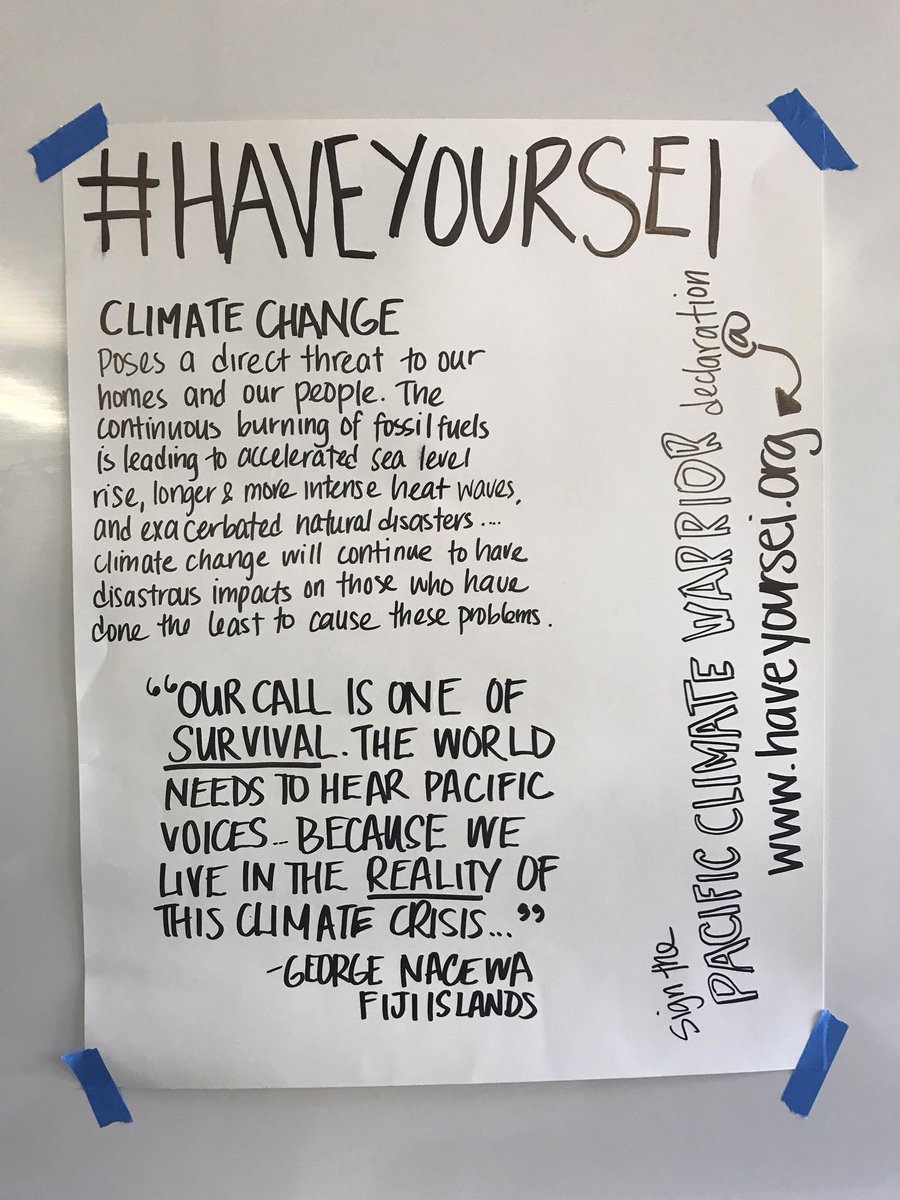 #HAVEYOURSEI
CLIMATE CHANGE
poses a direct threat to our
homes and our people. The
continuous burning of fossil fuels
is leading to accelerated sea level
rise, longer & more intense heat waves,
and exacerbated natural disasters....
climate change will continue to have
disastrous impacts on those who have
done the least to cause these problems.
“OUR CALL IS ONE OF
SURVIVAL. THE WORLD
NEEDS TO HEAR PACIFIC
VOICES... BECAUSE WE
LIVE IN THE REALITY OF
THIS CLIMATE CRISIS...”
-GEORGE NACEWA
FIJI ISLANDS
sign the
PACIFIC CLIMATE WARRIOR declaration @
www.haveyoursei.org